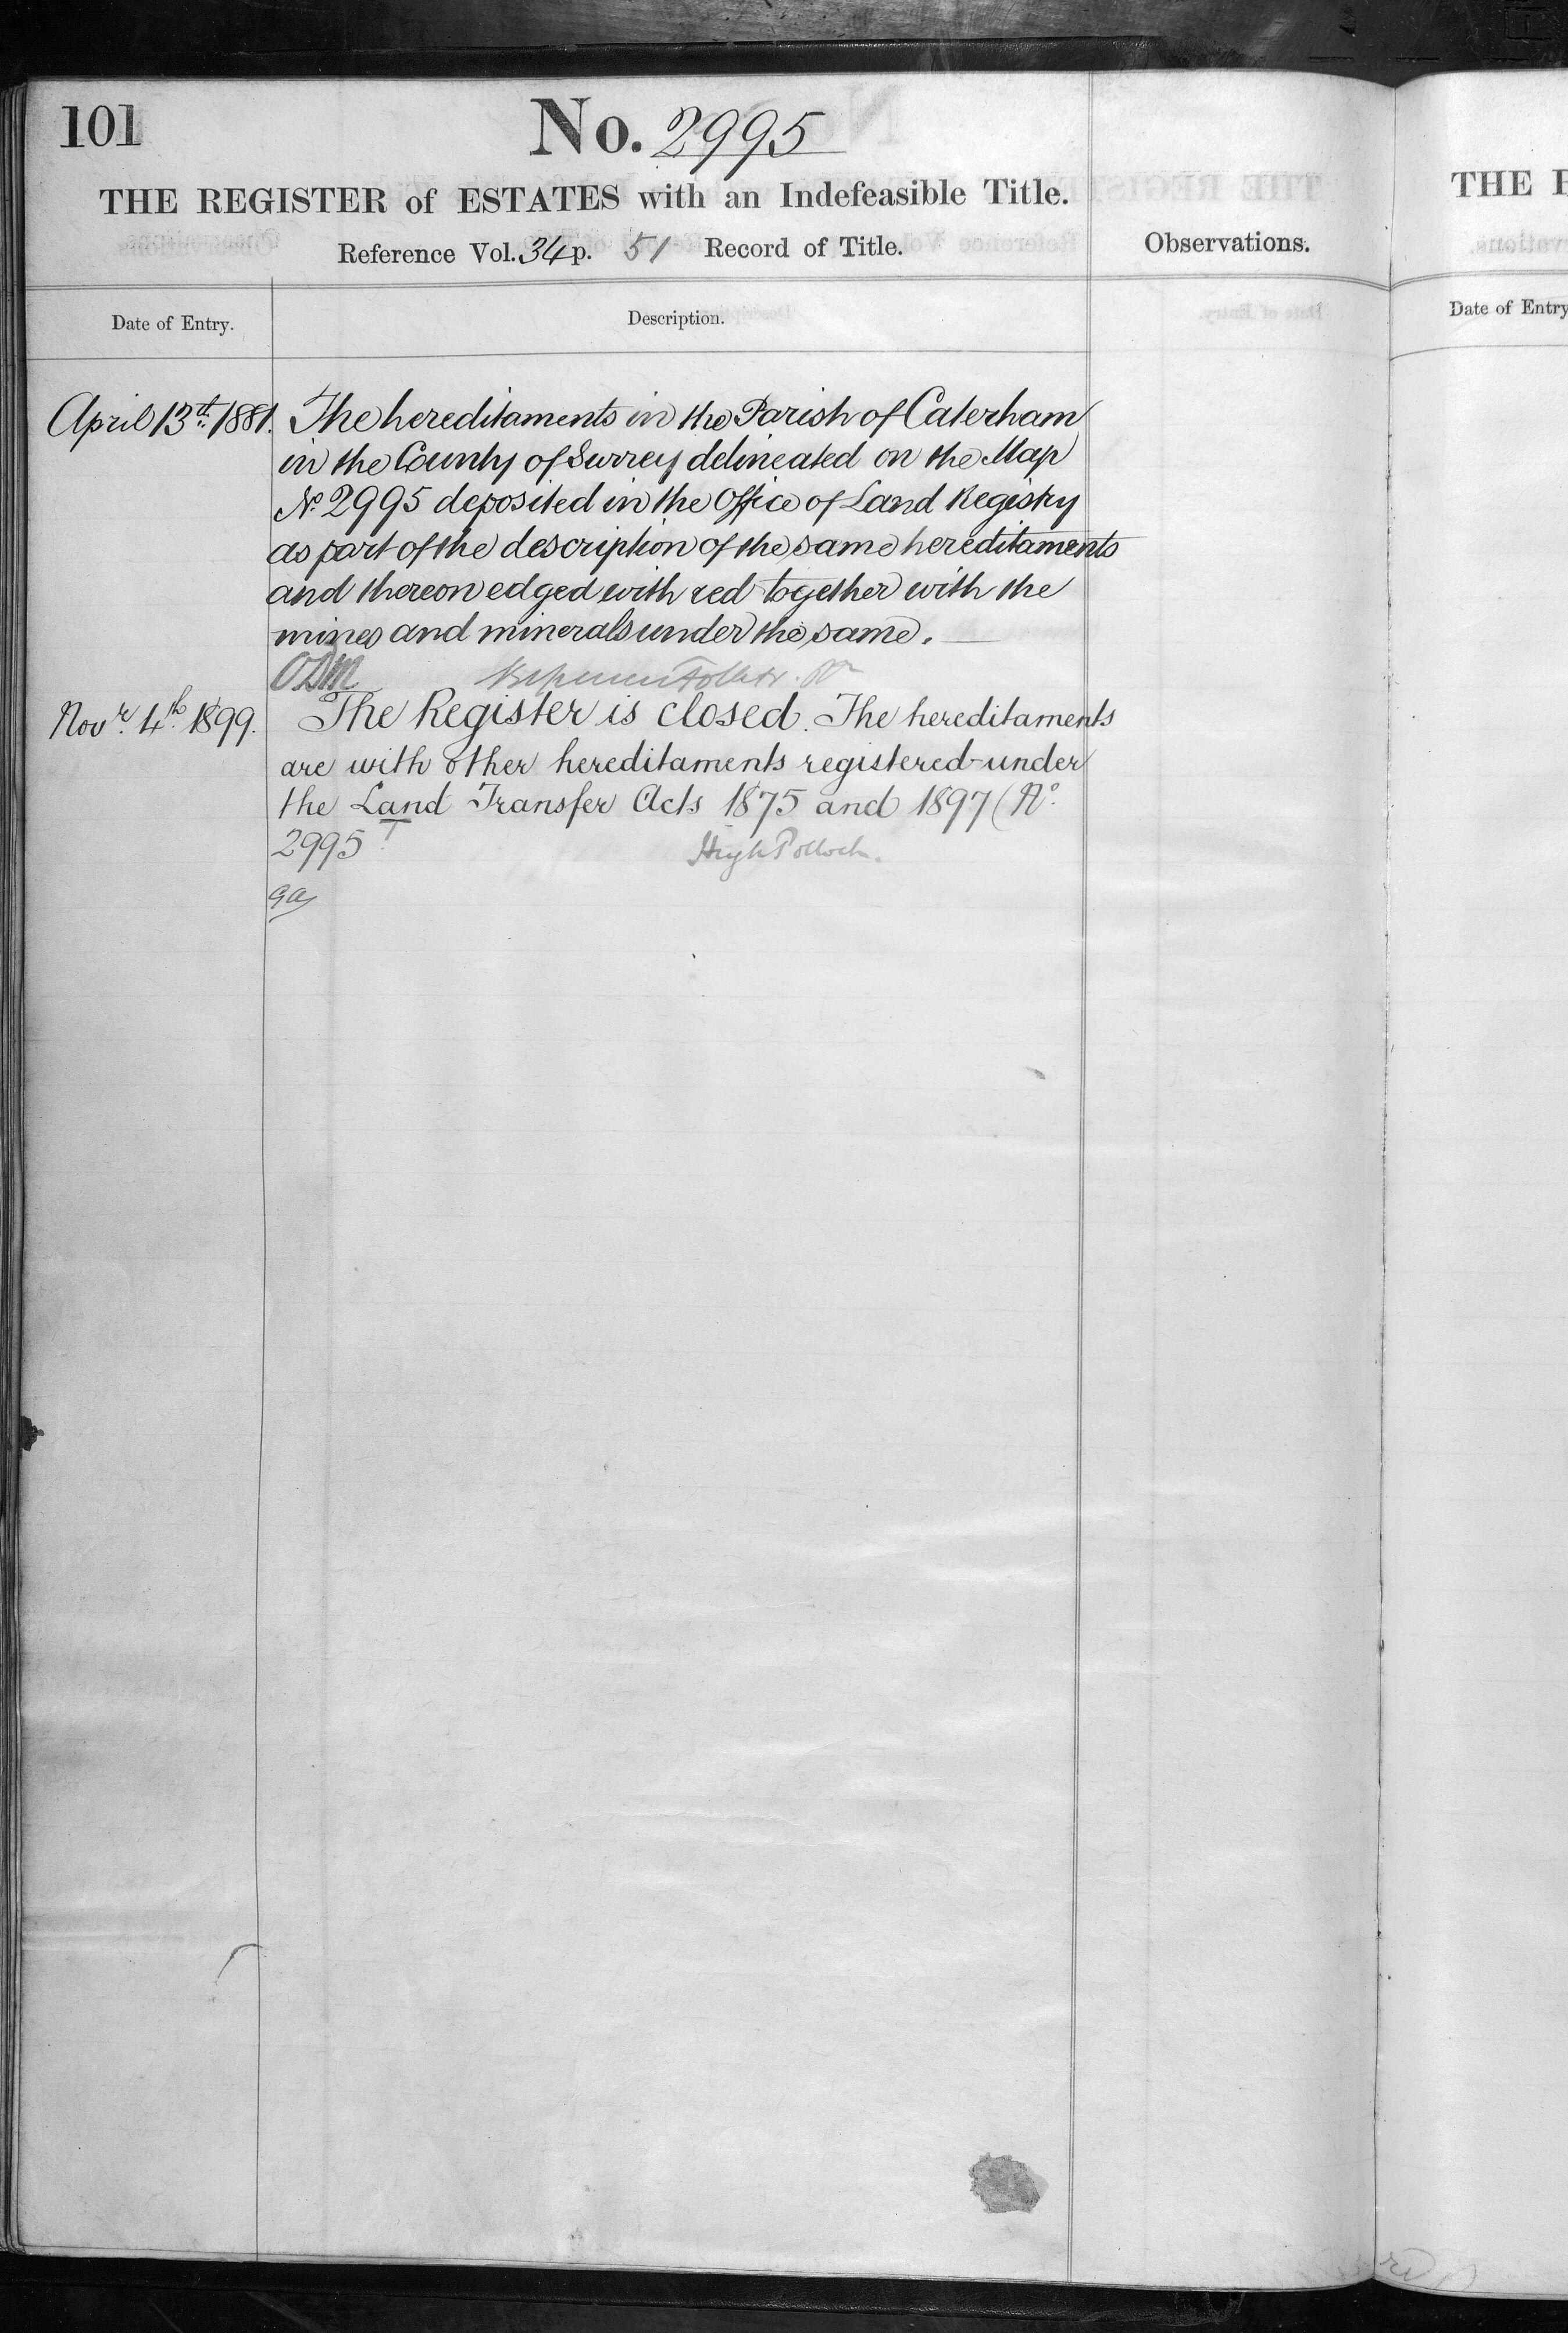 101
No. 2995
THE REGISTER of ESTATES with an Indefeasible Title.
Reference Vol. 34 p. 51 Record of Title.
Observations.
Date of Entry.
Description.
April 13th. 1881. The hereditaments in the Parish of Caterham
in the County of Surrey delineated on the Map
No. 2995 deposited in the Office of Land Registry
as part of the description of the same hereditaments
and thereon edged with red together with the
mines and minerals under the same.
Novr. 4th. 1899. The Register is closed. The hereditaments
are with other hereditaments registered under
the Land Transfer Acts 1875 and 1897 (No.
2995
Hugh Pollock.
THE
Date of Entry